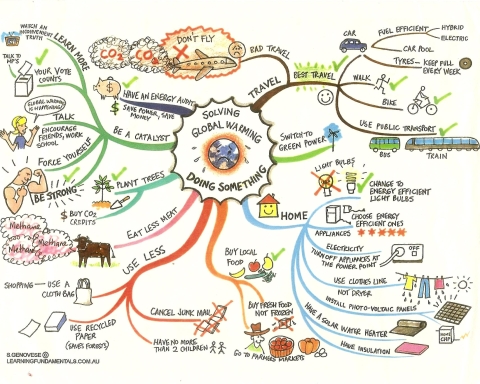 SOLVING
GLOBAL WARMING
DOING SOMETHING
TRAVEL
BAD TRAVEL
DON'T FLY
CO2
CO2
BEST TRAVEL
CAR
FUEL EFFICIENT
HYBRID
ELECTRIC
CAR POOL
TYRES - KEEP FULL
EVERY WEEK
WALK
BIKE
USE PUBLIC TRANSPORT
BUS
TRAIN
SWITCH TO
GREEN POWER
HOME
LIGHT BULBS
CHANGE TO
ENERGY EFFICIENT
LIGHT BULBS
APPLIANCES
CHOOSE ENERGY
EFFICIENT ONES
ELECTRICITY
TURN OFF APPLIANCES AT
THE POWER POINT
OFF
USE CLOTHES LINE
NOT DRYER
INSTALL PHOTO-VOLTAIC PANELS
HAVE A SOLAR WATER HEATER
HOME
CHIP
HAVE INSULATION
BUY LOCAL
FOOD
BUY FRESH FOOD
NOT FROZEN
GO TO FARMERS MARKETS
USE LESS
CANCEL JUNK MAIL
HAVE NO MORE
THAN 2 CHILDREN
SHOPPING - USE A
CLOTH BAG
USE RECYCLED
PAPER
(SAVES FORESTS)
EAT LESS MEAT
Methane
Methane
Methane
PLANT TREES
$ BUY CO2
CREDITS
BE A CATALYST
HAVE AN ENERGY AUDIT
$ SAVE POWER, SAVE
MONEY
LEARN MORE
WATCH AN
INCONVENIENT
TRUTH
TALK TO
MP'S
YOUR VOTE
COUNTS
TALK
GLOBAL WARMING
IS HAPPENING
ENCOURAGE
FRIENDS, WORK
SCHOOL
FORCE YOURSELF
BE STRONG
S.GENOVESE ©
LEARNINGFUNDAMENTALS.COM.AU